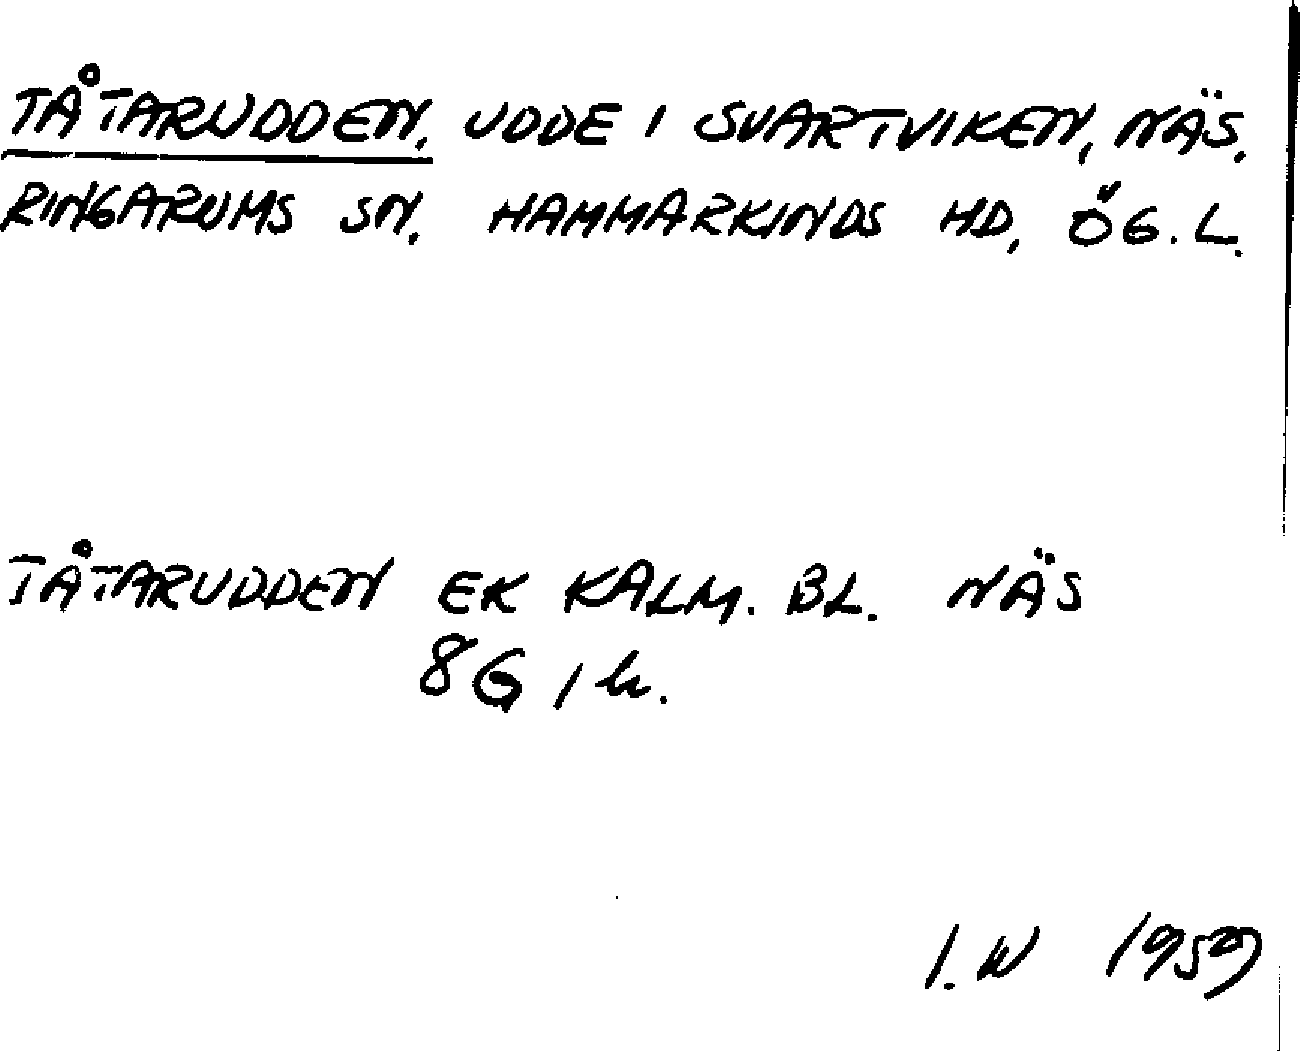 TÅTARUDDEN, UDDE I SVARTVIKEN, NÄS.
RINGARUMS SN. HAMMARKINDS HD, ÖG.L.
TÅTARUDDEN EK KALM. BL. NÄS
8G 1 h.
I.W 1959